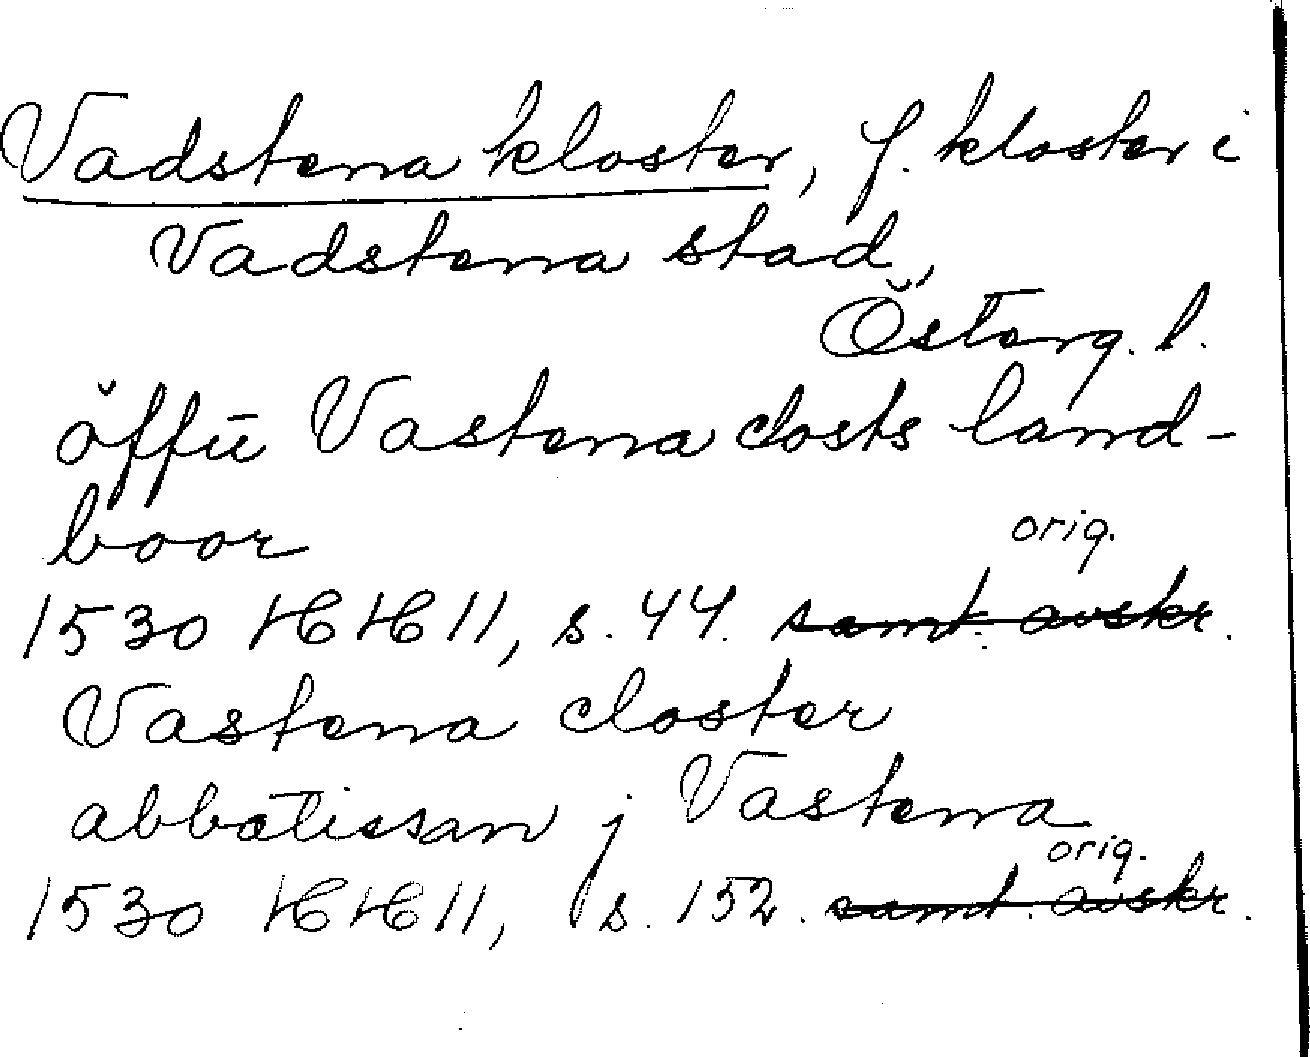 Vadstena kloster, f. kloster i
Vadstena stad,
Österg. l.
öffū Vastena closts land-
boor
orig.
1530 HH 11, s. 44. samt. avskr.
Vastena closter
abbatissan j Vastena
orig.
1530 HH 11, s. 152. samt. avskr.